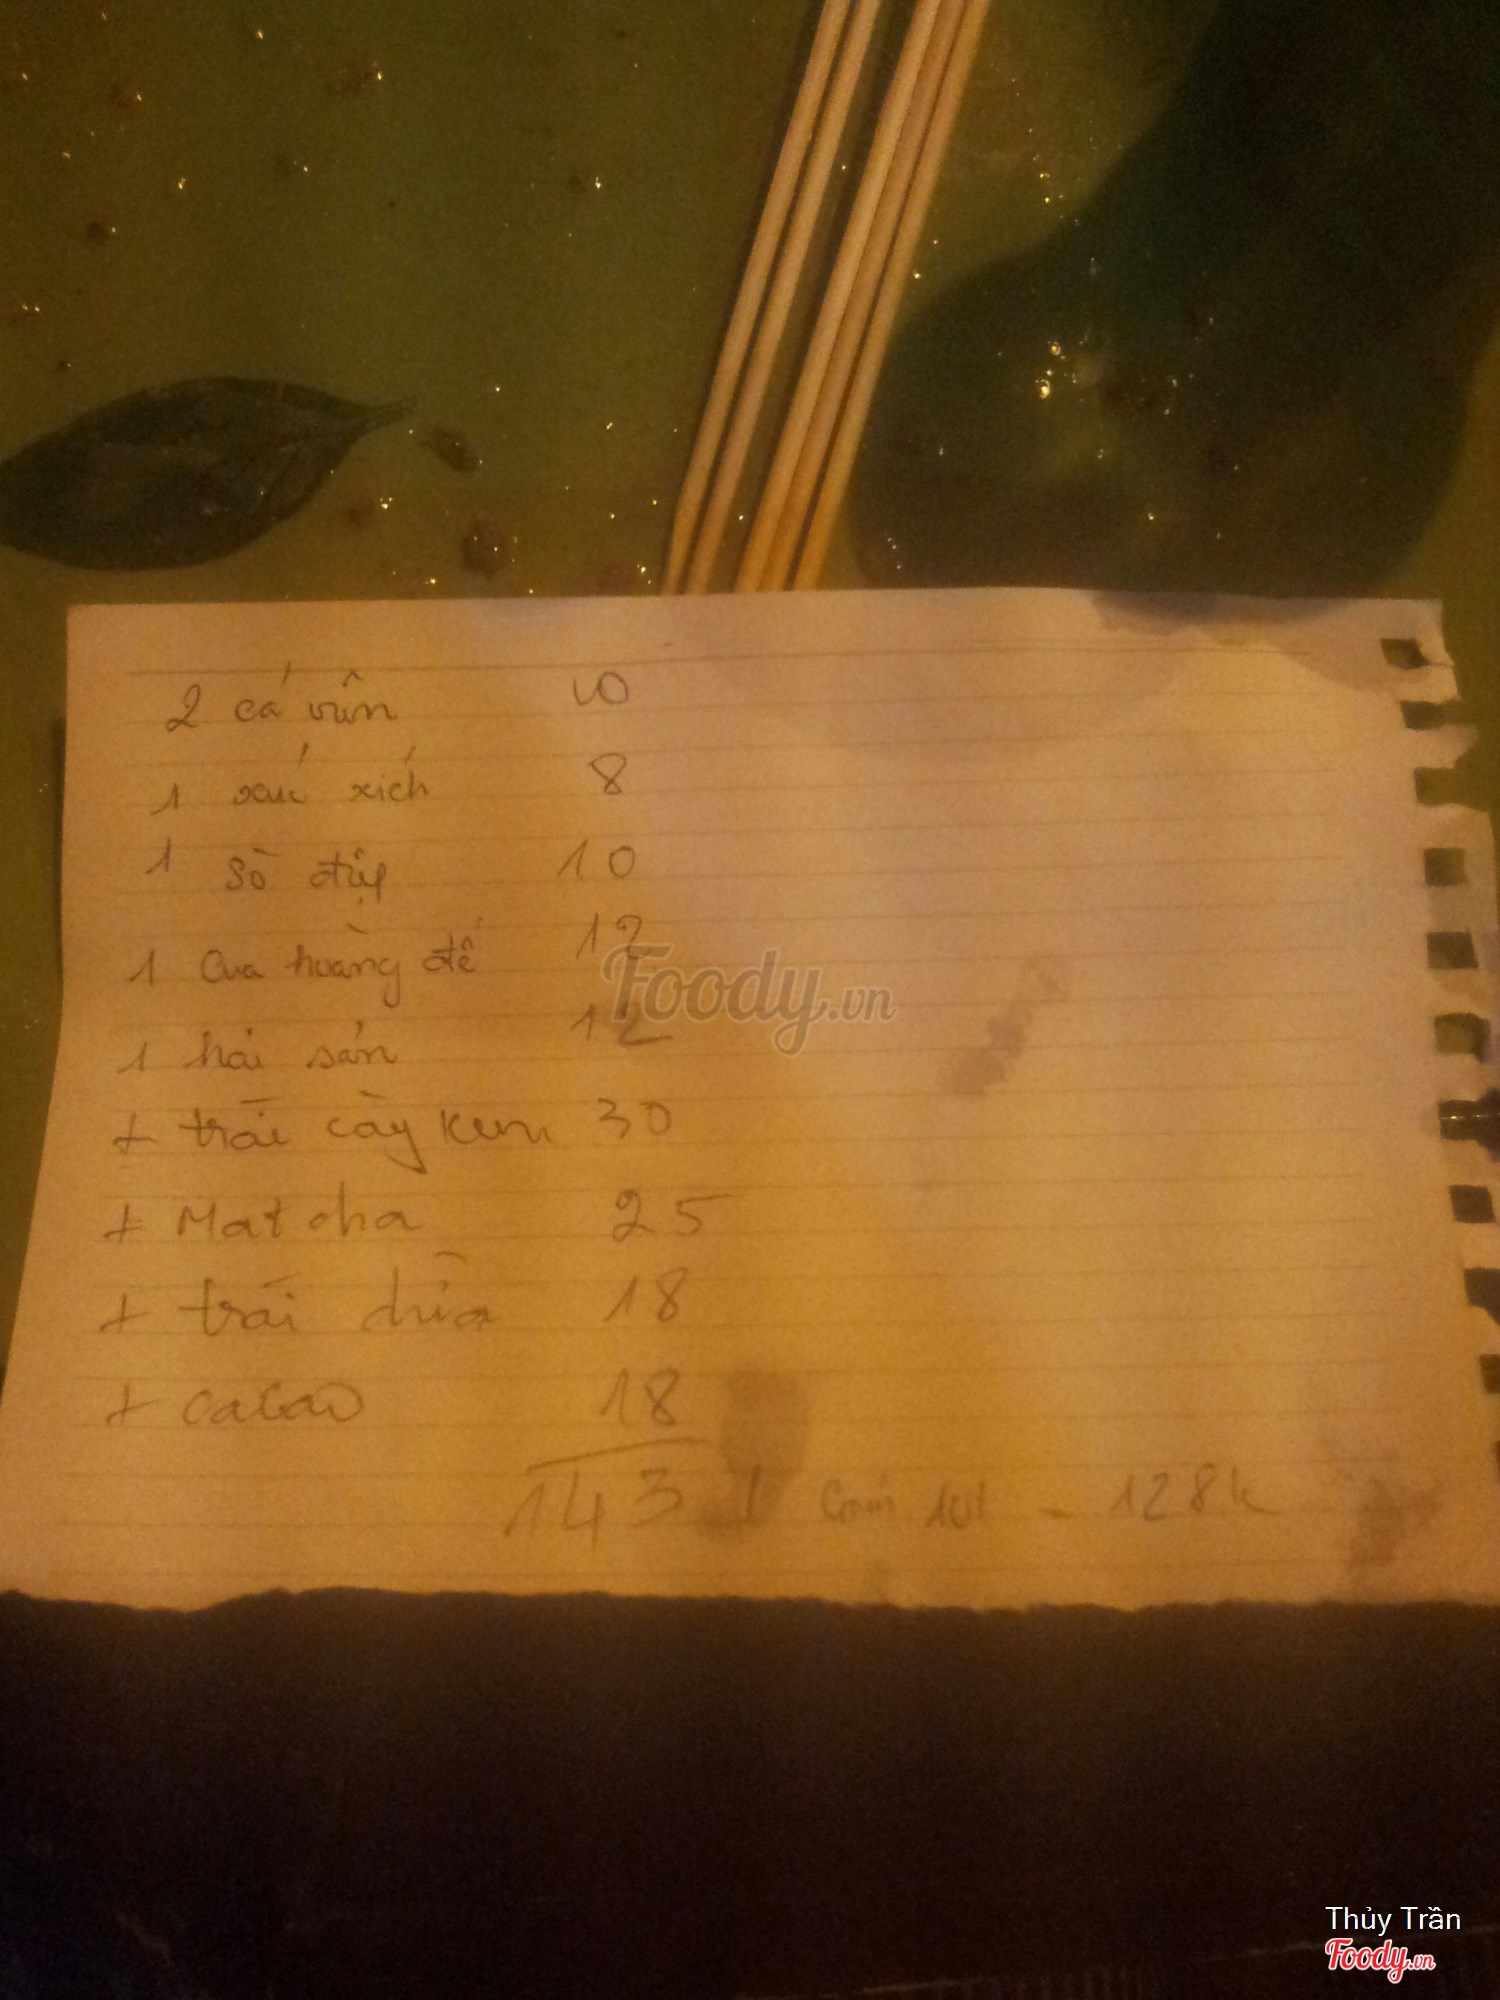 2 cá viên 10
1 xúc xích 8
1 Sò điệp 10
1 Cua hoàng đế 12
1 hải sản 12
+ trái cây kem 30
+ Matcha 25
+ trái dừa 18
+ cacao 18
143 - 128k
Foody.vn
Thủy Trần
Foody.vn